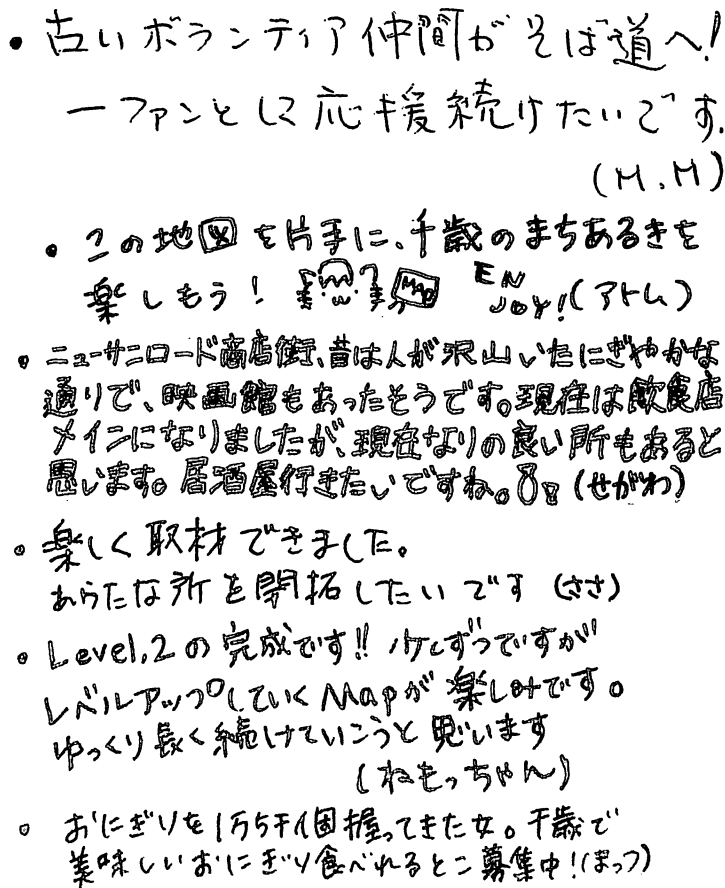 ・古いボランティア仲間がそば道へ！
一ファンとして応援続けたいです.
(M.M)
・この地図を片手に、千歳のまちあるきを
楽しもう！ MAP ENJOY!(アトム)
・ニューサンロード商店街、昔は人が沢山いたにぎやかな
通りで、映画館もあったそうです。現在は飲食店
メインになりましたが、現在なりの良い所もあると
思います。居酒屋行きたいですね。(せがわ)
・楽しく取材できました。
あらたな所を開拓したいです (ささ)
・Level.2の完成です!! 少しずつですが
レベルアップしていくMapが楽しみです。
ゆっくり長く続けていこうと思います
(ねもっちゃん)
・おにぎりを1万5千個握ってきた女。千歳で
美味しいおにぎり食べれるとこ募集中！(まっつ)